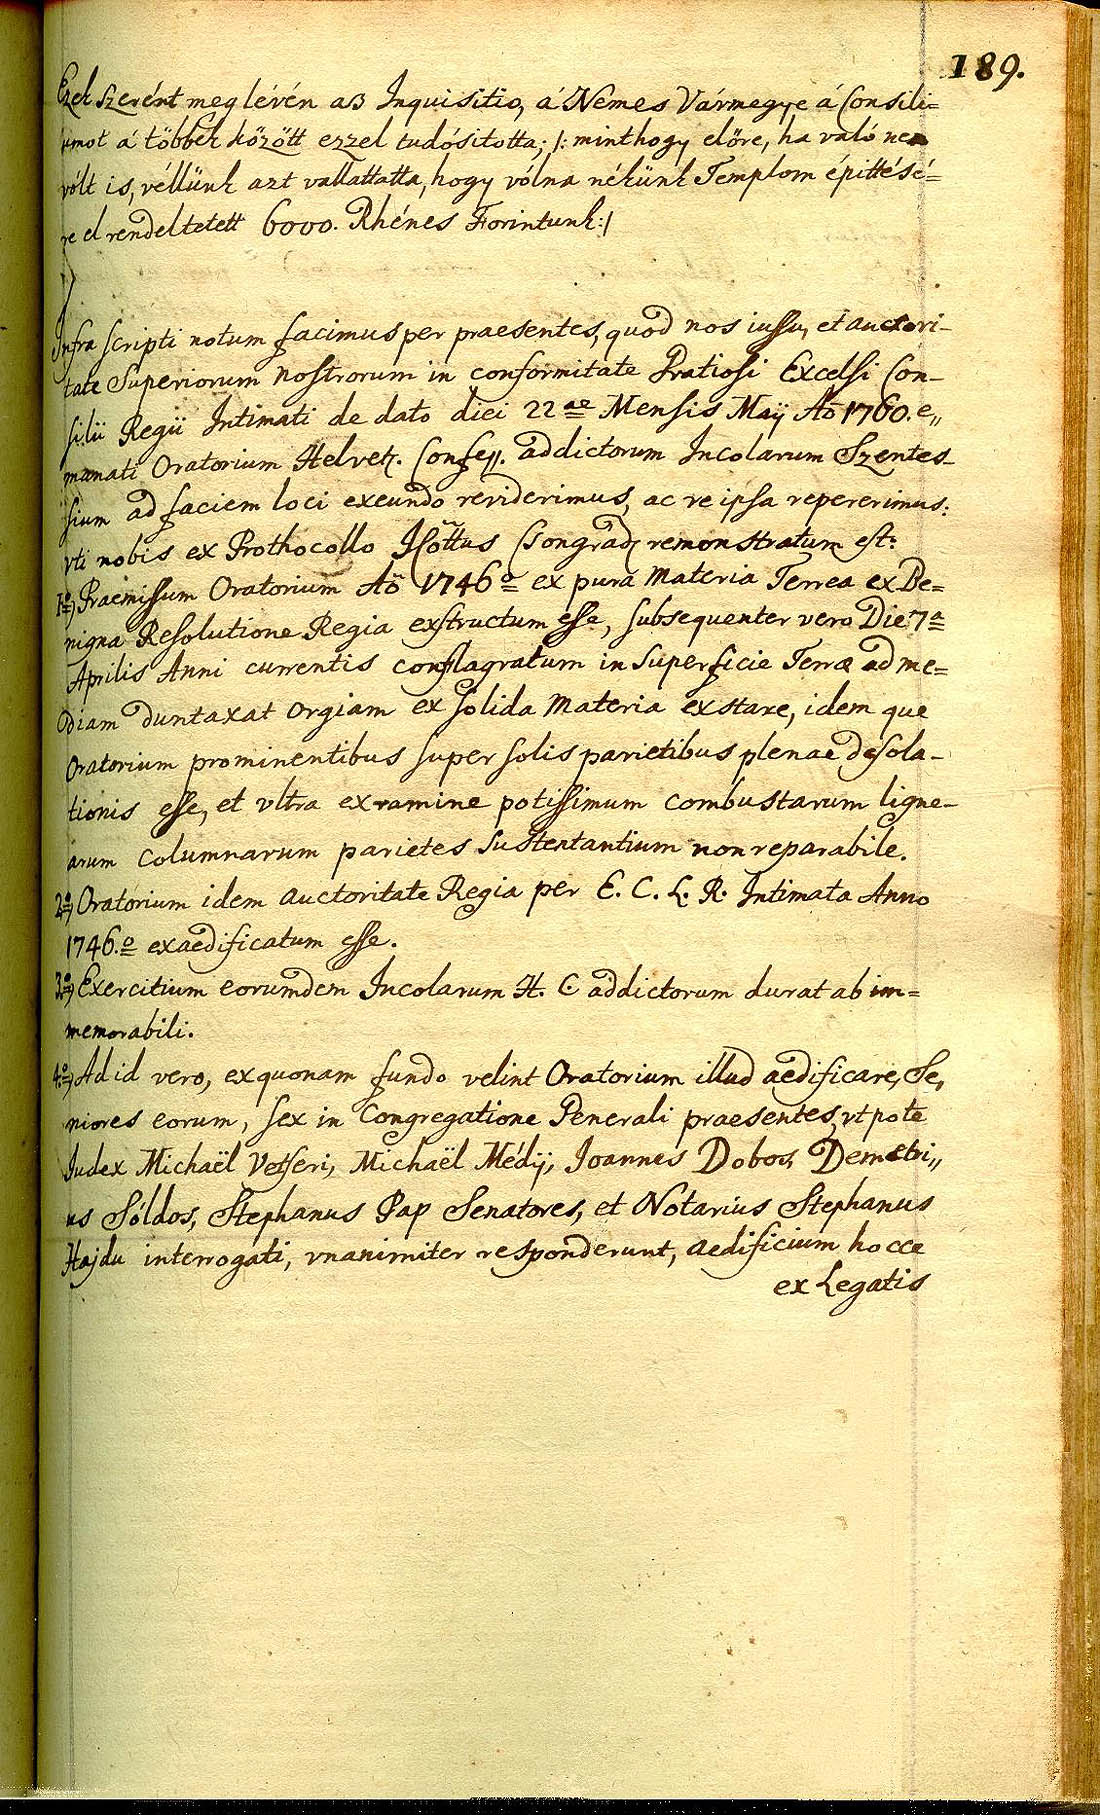 189.
Ezek szerént meglévén az Inquisitio, á Nemes Vármegye á Consili=
umot á többek között ezzel tudósitotta; /: minthogy előre, ha való nem
vólt is, véllünk azt vallattatta, hogy vólna nékünk Templom épittésé=
re el rendeltetett 6000. Rhénes Forintunk:/
Infra scripti notum facimus per praesentes, quod nos iussu, et auctori-
tate Superiorum nostrorum in conformitate Gratiosi Excelsi Con-
silii Regii Intimati de dato diei 22ae Mensis Maÿ Aō 1760. e„
manati Oratorium Helvet. Confess. addictorum Incolarum Szentes-
sium ad faciem loci exeundo reviderimus, ac re ipsa repererimus:
vti nobis ex Prothocollo I Cottus Csongrad remonstratum est:
1o) Praemissum Oratorium Aō 1746o ex pura Materia Terrea ex Be=
nigna Resolutione Regia exstructum esse, subsequenter vero Die 7a
Aprilis Anni currentis conflagratum in Superficie Terrae ad me=
diam duntaxat Orgiam ex solida Materia exstare, idem que
Oratorium prominentibus super solis parietibus plenae desola-
tionis esse, et vltra examine potissimum combustarum ligne-
arum columnarum parietes sustentantium non reparabile.
2o) Oratorium idem auctoritate Regia per E. C. L. R. Intimata Anno
1746.o exaedificatum esse.
3o) Exercitium eorumdem Incolarum H. C. addictorum durat ab im=
memorabili.
4o) Ad id vero, ex quonam fundo velint Oratorium illud aedificare, Se,
niores eorum, sex in Congregatione Generali praesentes, vt pote
Iudex Michaël Vetseri, Michaël Médÿ, Joannes Dobos, Demetri„
us Sóldos, Stephanus Pap Senatores, et Notarius Stephanus
Hajdu interrogati, vnanimiter responderunt, aedificium hocce
ex Legatis